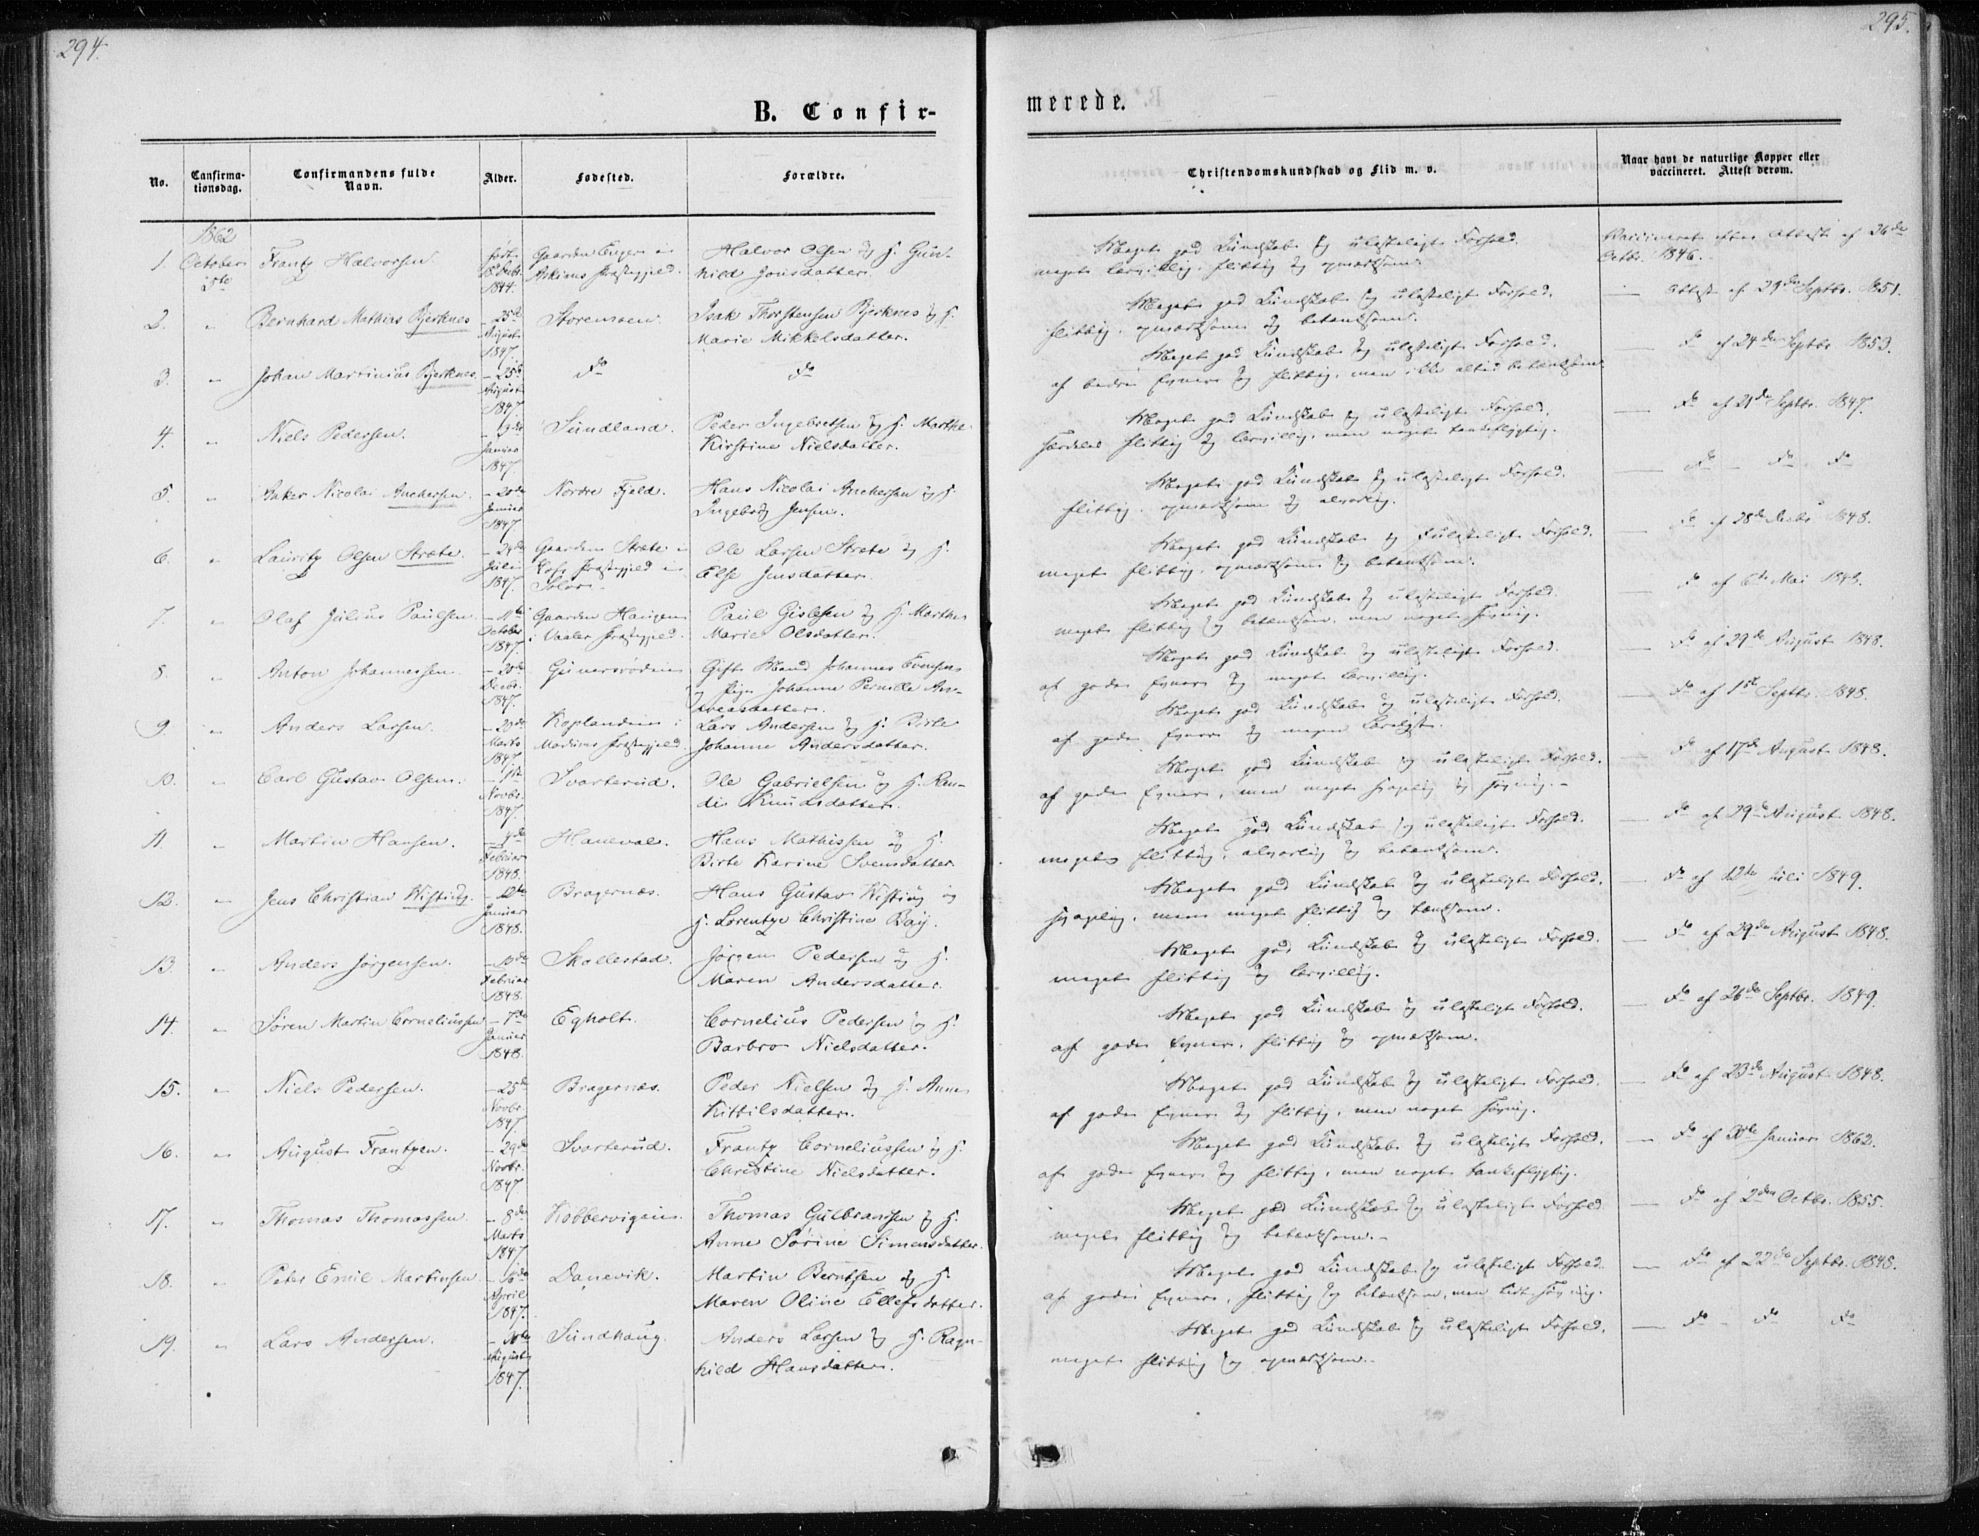 294.
295.
B. Confir-
merede.
No.
Confirma-
tionsdag.
Confirmandens fulde
Navn.
Alder.
Fødested.
Forældre.
Christendomskundskab og Flid m. v.
Naar havt de naturlige Kopper eller
vaccineret. Attest derom.
1862
1. October Frantz Halvorsen. født Gaarden Halvor Olsen og H. Gun-
1844. Præstegjeld. hild
Meget god Kundskab og ulasteligt Forhold.
meget lærvillig, flittig og opmærksom.
Vaccineret efter Attest af 26de
Octbr. 1846.
2. " Bernhard Mathias Bjerknes – 25de Storemoen. Isak Thorstensen Bjerknes og H.
August Marie Mikkelsdatter.
1847.
Meget god Kundskab og ulasteligt Forhold.
flittig, opmærksom og betænksom.
— Attest af 29de Septbr. 1851.
3. " Johan Martinius Bjerknes. – 25de Do Do
August
1847.
Meget god Kundskab og ulasteligt Forhold.
af bedre Evner og flittig, men ikke altid betænksom.
— Do af 24de Septbr. 1853.
4. " Niels Pedersen. Sundland. Peder Ingebretsen og H. Marthe
Januar Kirstine Nielsdatter.
1847.
Meget god Kundskab og ulasteligt Forhold.
særdeles flittig og lærvillig, men noget tankeflygtig.
— Do af 21de Septbr. 1847.
5. " Anker Nicolai Anchersen. – 20de Nordre Fjeld. Hans Nicolai Anchersen og H.
Januar Ingeborg Jensen.
1847.
Meget god Kundskab og ulasteligt Forhold.
flittig, opmærksom og alvorlig.
— Do – Do – Do
6. " Lauritz Olsen Stræte. – 24de Gaarden Stræte i Ole Larsen Stræte og H.
Juli Præstegjeld i Else Jensdatter.
1847. Solør.
Meget god Kundskab og ulasteligt Forhold.
meget flittig, opmærksom og betænksom.
— Do af 28de Decbr. 1848.
7. " Olaf Julius Paulsen. – 11te Gaarden Haugen Paul Gislesen og H. Marthe
October i Vaaler Præstegjeld. Marie Olsdatter.
1847.
Meget god Kundskab og ulasteligt Forhold.
meget flittig og betænksom, men noget
— Do af 6te Mai 1848.
8. " Anton Johannessen. – 20de Gunersrøden Gift Mand Johannes Evensen
Decbr. og Pige Johanne Pernille An-
1847. dreasdatter.
Meget god Kundskab og ulasteligt Forhold.
af gode Evner og meget lærvillig.
— Do af 29de August 1848.
9. " Anders Larsen. – 20de Koplanden i Lars Andersen og H. Birte
Marts Modums Præstegjeld. Johanne Andersdatter.
1847
Meget god Kundskab og ulasteligt Forhold.
af gode Evner og megen
— Do af 1ste Septbr. 1848.
10. " Carl Gustav Olsen. – 1ste Svarterud. Ole Gabrielsen og H. Ran-
Novbr. di Knudsdatter.
1847.
Meget god Kundskab og ulasteligt Forhold.
af gode Evner, men meget
— Do af 17de August 1848.
11 " Martin Hansen. Haneval. Hans Mathissen og H.
Februar Birte Karine Svensdatter
1848.
Meget god Kundskab og ulasteligt Forhold.
meget flittig, alvorlig og betænksom.
— Do af 29de August 1848.
12. " Jens Christian Wisting. Bragernæs. Hans Gustav Wisting og
Januar H. Lorentze Christine Bay.
1848.
Meget god Kundskab og ulasteligt Forhold.
men meget flittig og
— Do af 12te Juli 1849.
13. " Anders Jørgensen. – 13de Skallestad. Jørgen Pedersen og H.
Februar Maren Andersdatter.
1848.
Meget god Kundskab og ulasteligt Forhold.
meget flittig og lærvillig.
— Do af 29de August 1848.
14. " Søren Martin Corneliussen – 7de Egholt. Cornelius Pedersen og H.
Januar Barbro Nielsdatter.
1848.
Meget god Kundskab og ulasteligt Forhold.
af gode Evner, flittig og opmærksom.
— Do af 26de Septbr. 1849.
15. " Niels Pedersen. – 25de Bragernæs. Peder Nielsen og H. Anne
Novbr. Kittilsdatter.
1847.
Meget god Kundskab og ulasteligt Forhold.
af gode Evner og flittig, men noget
— Do af 23de August 1848.
16. " August Frantzen. – 29de Svarterud. Frantz Corneliussen og H.
Novbr. Christine Nielsdatter.
1847
Meget god Kundskab og ulasteligt Forhold.
af gode Evner og flittig, men noget tankeflygtig.
— Do af Januar 1862.
17. " Thomas Thomassen. – 8de Kobbervigen. Thomas Gulbrandsen og H.
Marts Anne Sørine Simensdatter.
1847
Meget god Kundskab og ulasteligt Forhold
meget flittig og betænksom.–
— Do af 2den Octbr. 1855.
18. " Peter Emil Martinsen – 16de Danevik. Martin Berntsen og H.
April Maren Oline Ellefsdatter.
1847.
Meget god Kundskab og ulasteligt Forhold
af gode Evner, flittig og betænksom, men
— Do af 22de Septbr. 1848.
19. " Lars Andersen. Sundhaug. Anders Larsen og H. Ragn-
August hild Hansdatter.
1847.
Meget god Kundskab og ulasteligt Forhold.
meget flittig og opmærksom.–
— Do – Do Do